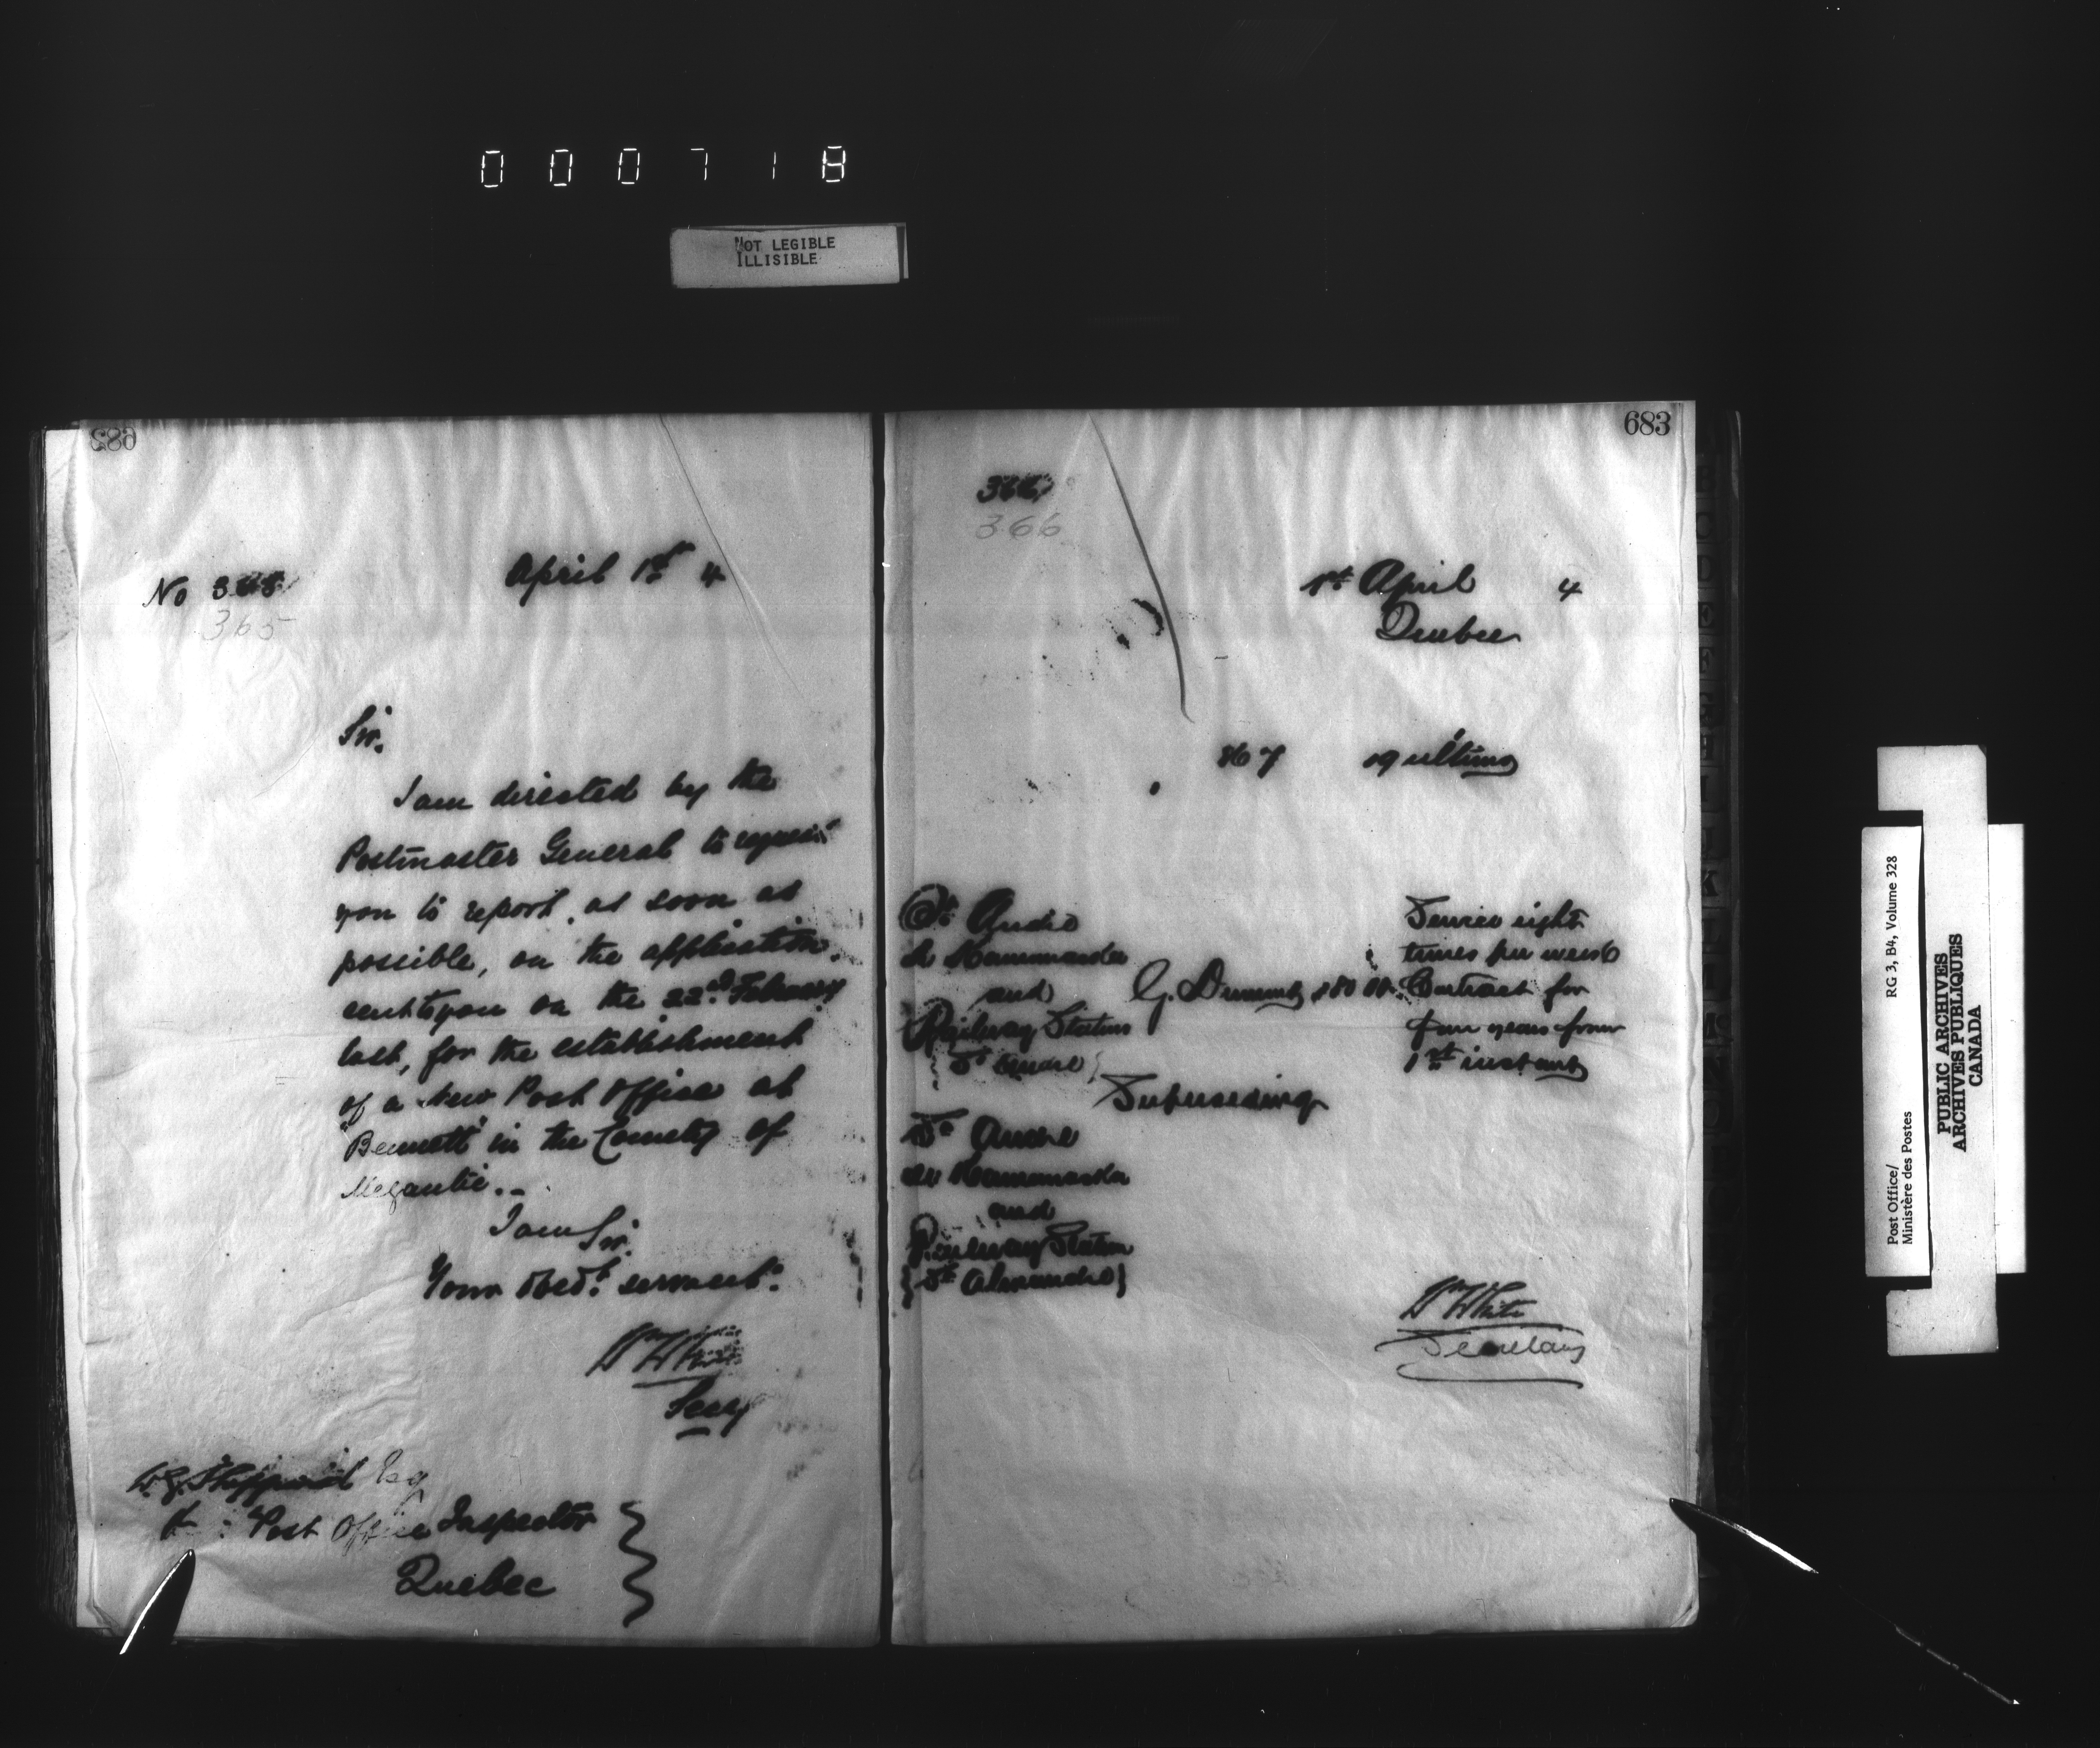 000718
NOT LEGIBLE
ILLISIBLE
682
No 365
365
April 1st 4
Sir.
I am directed by the
Postmaster General to request
you to report, as soon as
possible, on the application,
sent to you on the 22nd February
last, for the establishment
of a New Post Office at
"Bennett" in the County of
Megantic. _
I am Sir.
Your Obedt. servant.
Wm White
Secy
W.G. Sheppard Esq
Post Office Inspector
Quebec
683
366
366
1st April 4
Quebec
867 19 ultimo
St André
de Kamouraska
and
Railway Station
St André
G. Dumont $80.00
Service eight
times per week
Contract for
four years from
1st instant
Superseding
St André
de Kamouraska
and
Railway Station
{St Alexandre}
Wm White
Secretary
Post Office/
Ministère des Postes
RG 3, B4, Volume 328
PUBLIC ARCHIVES
ARCHIVES PUBLIQUES
CANADA